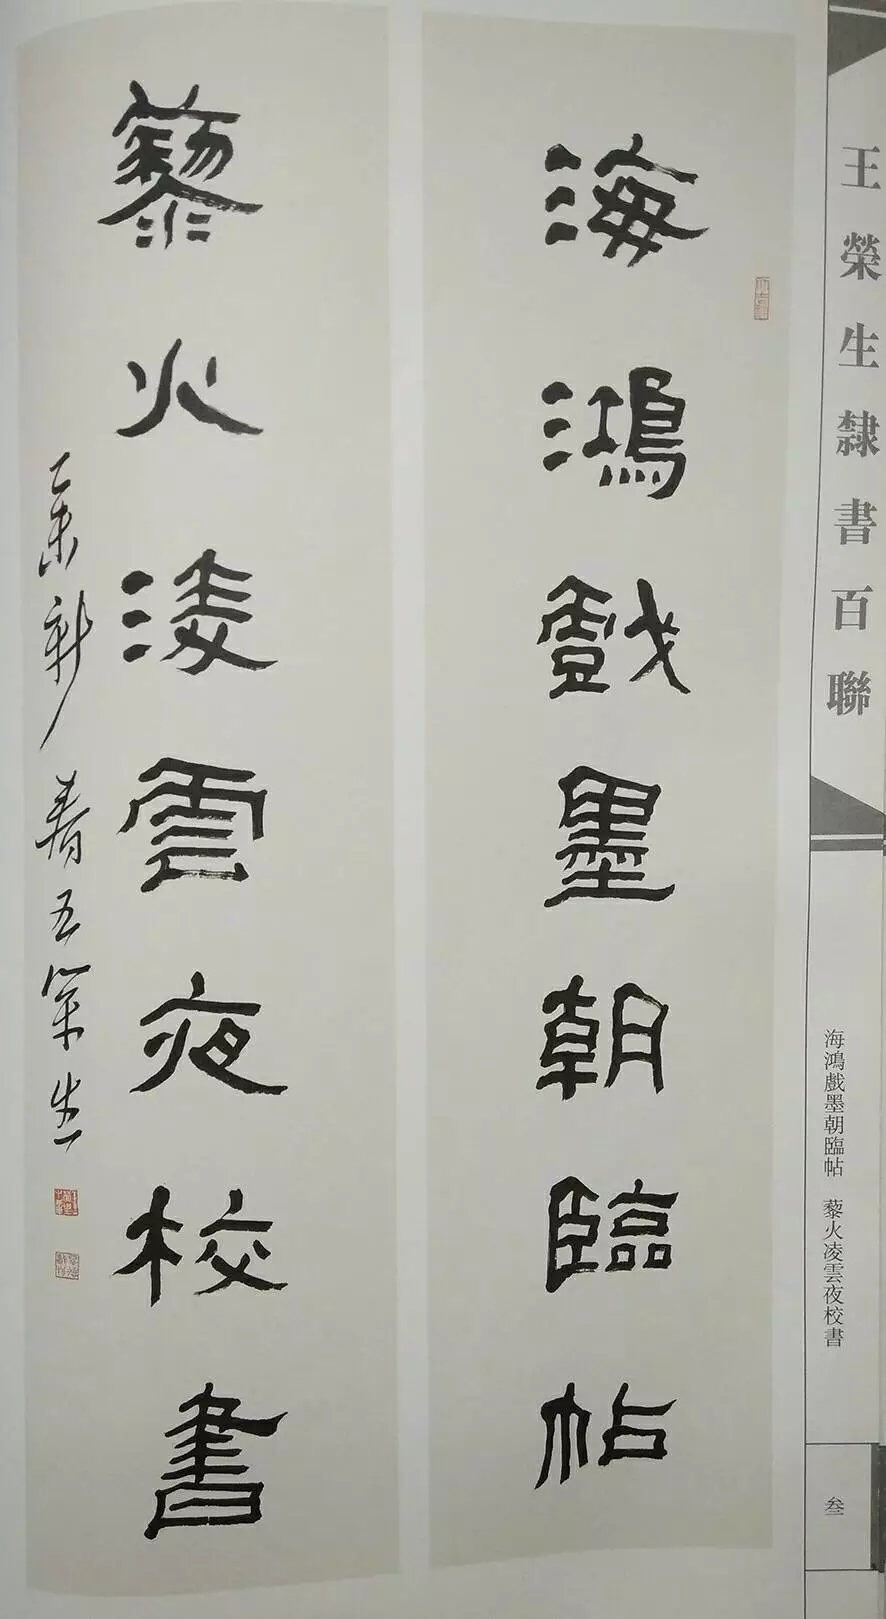 王榮生隸書百聯
海鴻戲墨朝臨帖
藜火凌雲夜校書
乙未新春王榮生
海鴻戲墨朝臨帖　藜火凌雲夜校書
叁